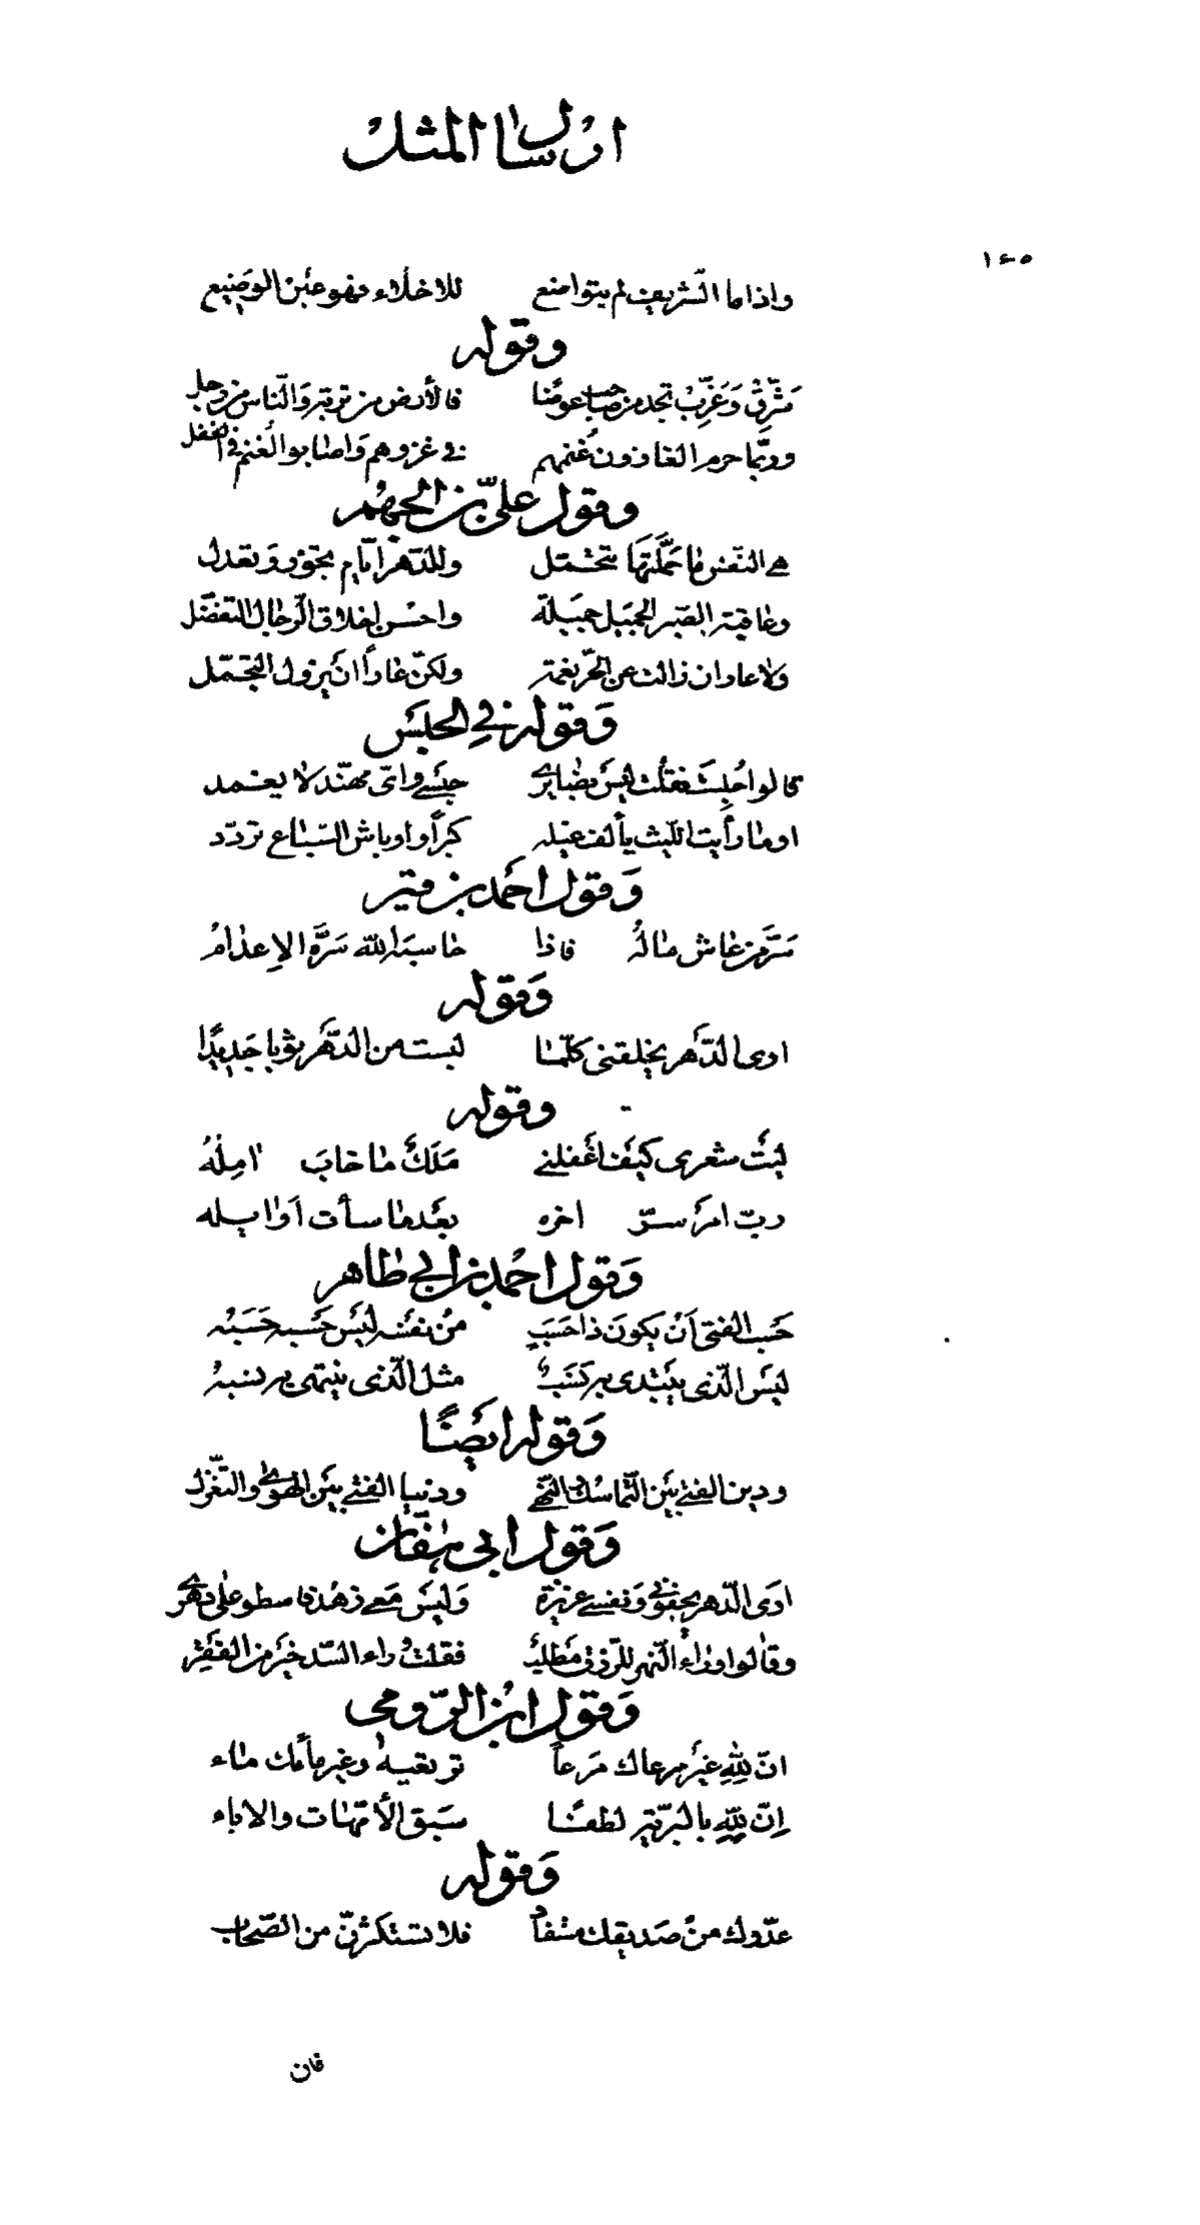 ارسال المثل
١٤٥
واذا ما الشّريف لم يتواضع للاخلّاء فهو عَبن الوَضيع
وقوله
شَرِّقْ وَغَرِّبْ تجد من صاحب عوضًا فالأرض من تربة وَالنّاس من رجل
وربّما حرم الغازون غُنمهم فى غزوهم وَاصابوا الغنم فى القفل
وقول علىّ بن الجهم
هى النّفس ما حَمَّلتَهَا تتحّمل وللدّهر ايّام تجَوْر وَتعدل
وعاقبة الصّبر الجميل جميلة واحسْن اخلاق الرّجال التفضّل
وَلا عار ان زالت عن الحرّ نعمة ولكنّ عارًا ان يَزول التّجمّل
وَقوله فى الحبْس
قالوا حُبِستَ فقلت ليسَ بضايرى حبْسى واىّ مهنّد لا يغمد
اوما رأيت اللّيث يألف غيله كبرًا واوباش السّباع تردّد
وَقول احْمد بن
سَرَّ من عاش ماله فاذا حاسبَه اللّه سَرَّه الاِعدامُ
وَقوله
ارى الدّهَر يخلقنى كلّما لبست من الدّهَر ثوبا جَديدًا
وقوله
ليتَ شعرى كيفَ اغفلنى مَلَكٌ ما خابَ امِلهُ
ربّ امرَ سرّ اخره بعْدما سأت اَوايله
وَقول احْمد بن ابى طاهر
حَسب الفتى اَنْ يكونَ ذا حَسَبٍ منْ نفسْه ليسَ حَسبه حَسَبُه
ليسَ الّذى يبتْدى به نسَبٌ مثل الّذى ينتهى به نسبهُ
وَقوله ايضًا
ودين الفتى بيَن التّماسُك والنّهى ودنيا الفتى بيَن الهوَى والتّغزّل
وَقول ابى هفّان
ارَى الدّهر يجفونى وَنفسى عزيزة وَليسَ مَعى زهْد فاسطو على دهرى
وقالوا وراءَ النّهر للرّزق مَطلب فقلتُ وراء السّدّ خيَر من الفقَر
وَقول ابن الرّومى
انّ لِلّهِ غيَر مرعاك مَرعاً ترتعيه وغير مأئك ماء
اِنّ لِلّهِ بالبريّة لطفًا سَبق الأمّهات والاباء
وَقوله
عدّوك منْ صَديقك مستفاد فلا تستكثرَنّ من الصّحاب
فان